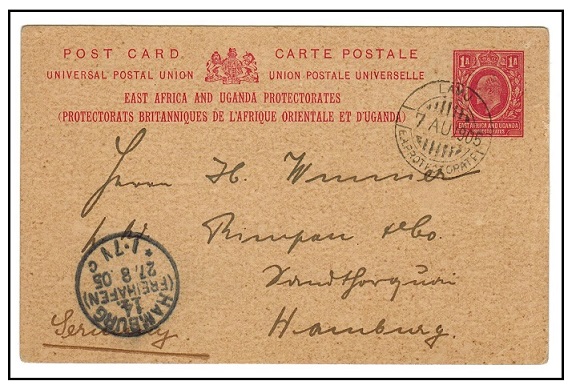 POST CARD. CARTE POSTALE
UNIVERSAL POSTAL UNION UNION POSTALE UNIVERSELLE
EAST AFRICA AND UGANDA PROTECTORATES
(PROTECTORATS BRITANNIQUES DE L'AFRIQUE ORIENTALE ET D'UGANDA)
1A 1A
EAST AFRICA AND UGANDA
PROTECTORATES
LAMU
7 AU 1905
Herrn H.
Rimpau & Co.
Sandthorquai
Hamburg.
HAMBURG
(FREIHAFEN)
14.
27.8.05
* 1-7 N C
Germany